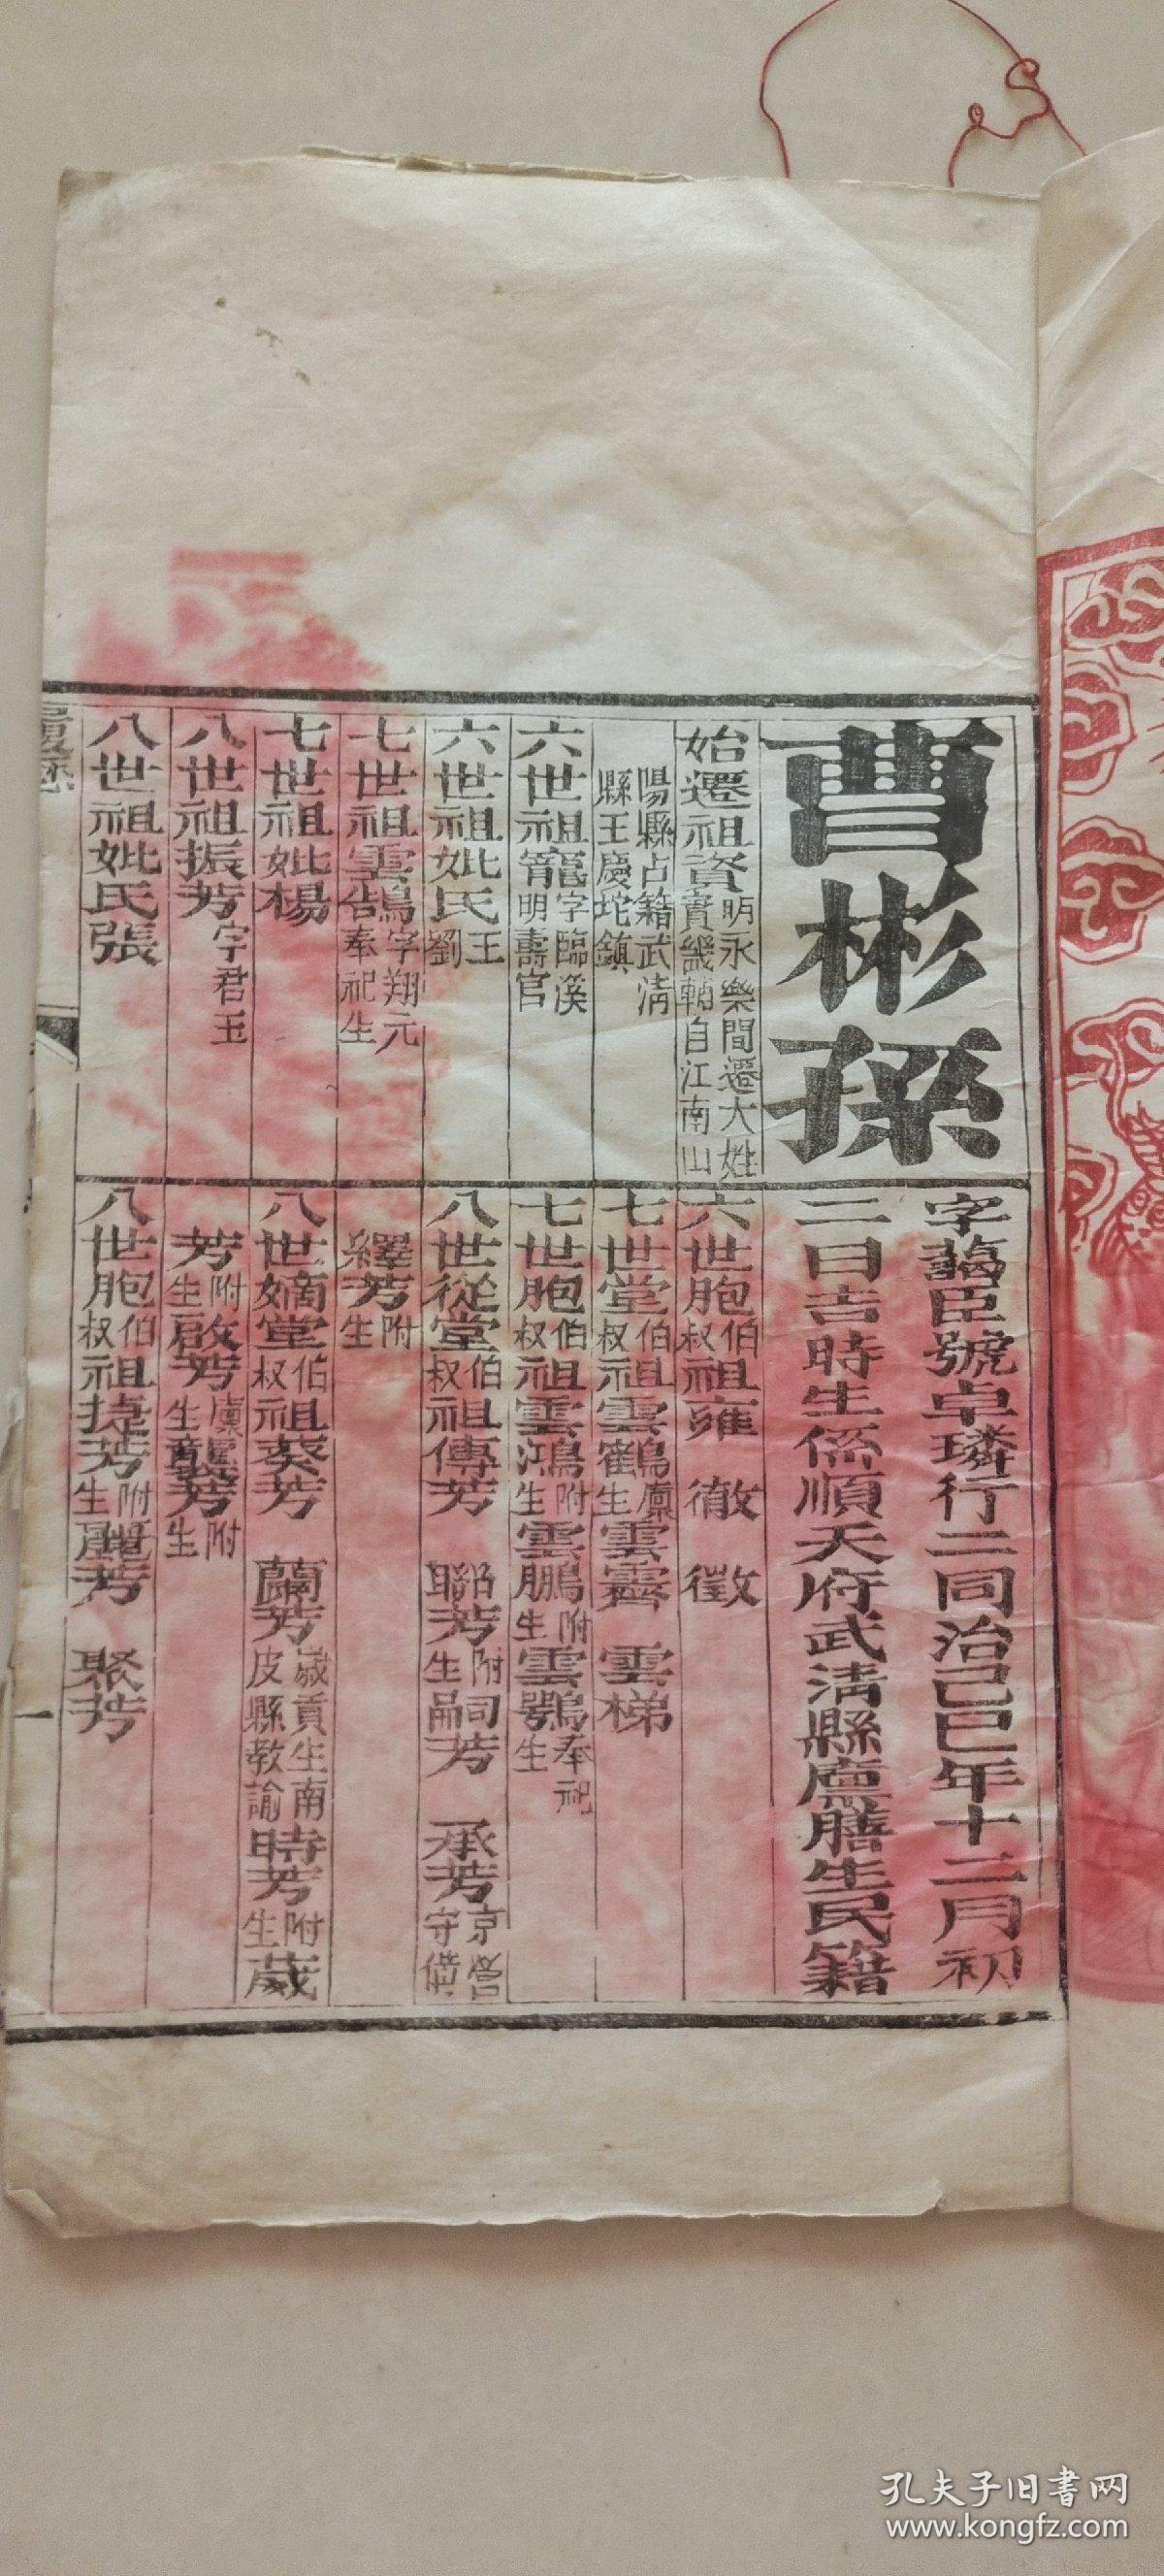 曹彬孫
字藹臣號卓璘行二同治己巳年十二月初
二日吉時生係順天府武淸縣廩膳生民籍
始遷祖資明永樂間遷大姓實畿輔自江南山
陽縣占籍武淸縣王慶坨鎮
六世祖寵字臨溪明壽官
六世祖妣氏王劉
七世祖雲鵠字翔元奉祀生
七世祖妣楊
八世祖振芳字君玉
八世祖妣氏張
六世胞伯叔祖雍 徹 徵
七世堂伯叔祖雲鶴廩生雲霽 雲梯
七世胞伯叔祖雲鴻附生雲鵬附生雲鶚奉祀生
八世從堂伯叔祖傳芳 聯芳附生司芳 承芳京營守備
繹芳附生
八世嫡堂伯叔祖葵芳 蘭芳歲貢生南皮縣教諭時芳附生葳
芳附生啟芳廩生龔芳附生
八世胞伯叔祖捷芳附生麗芳 聚芳
履歷
一
孔夫子旧书网
www.kongfz.com